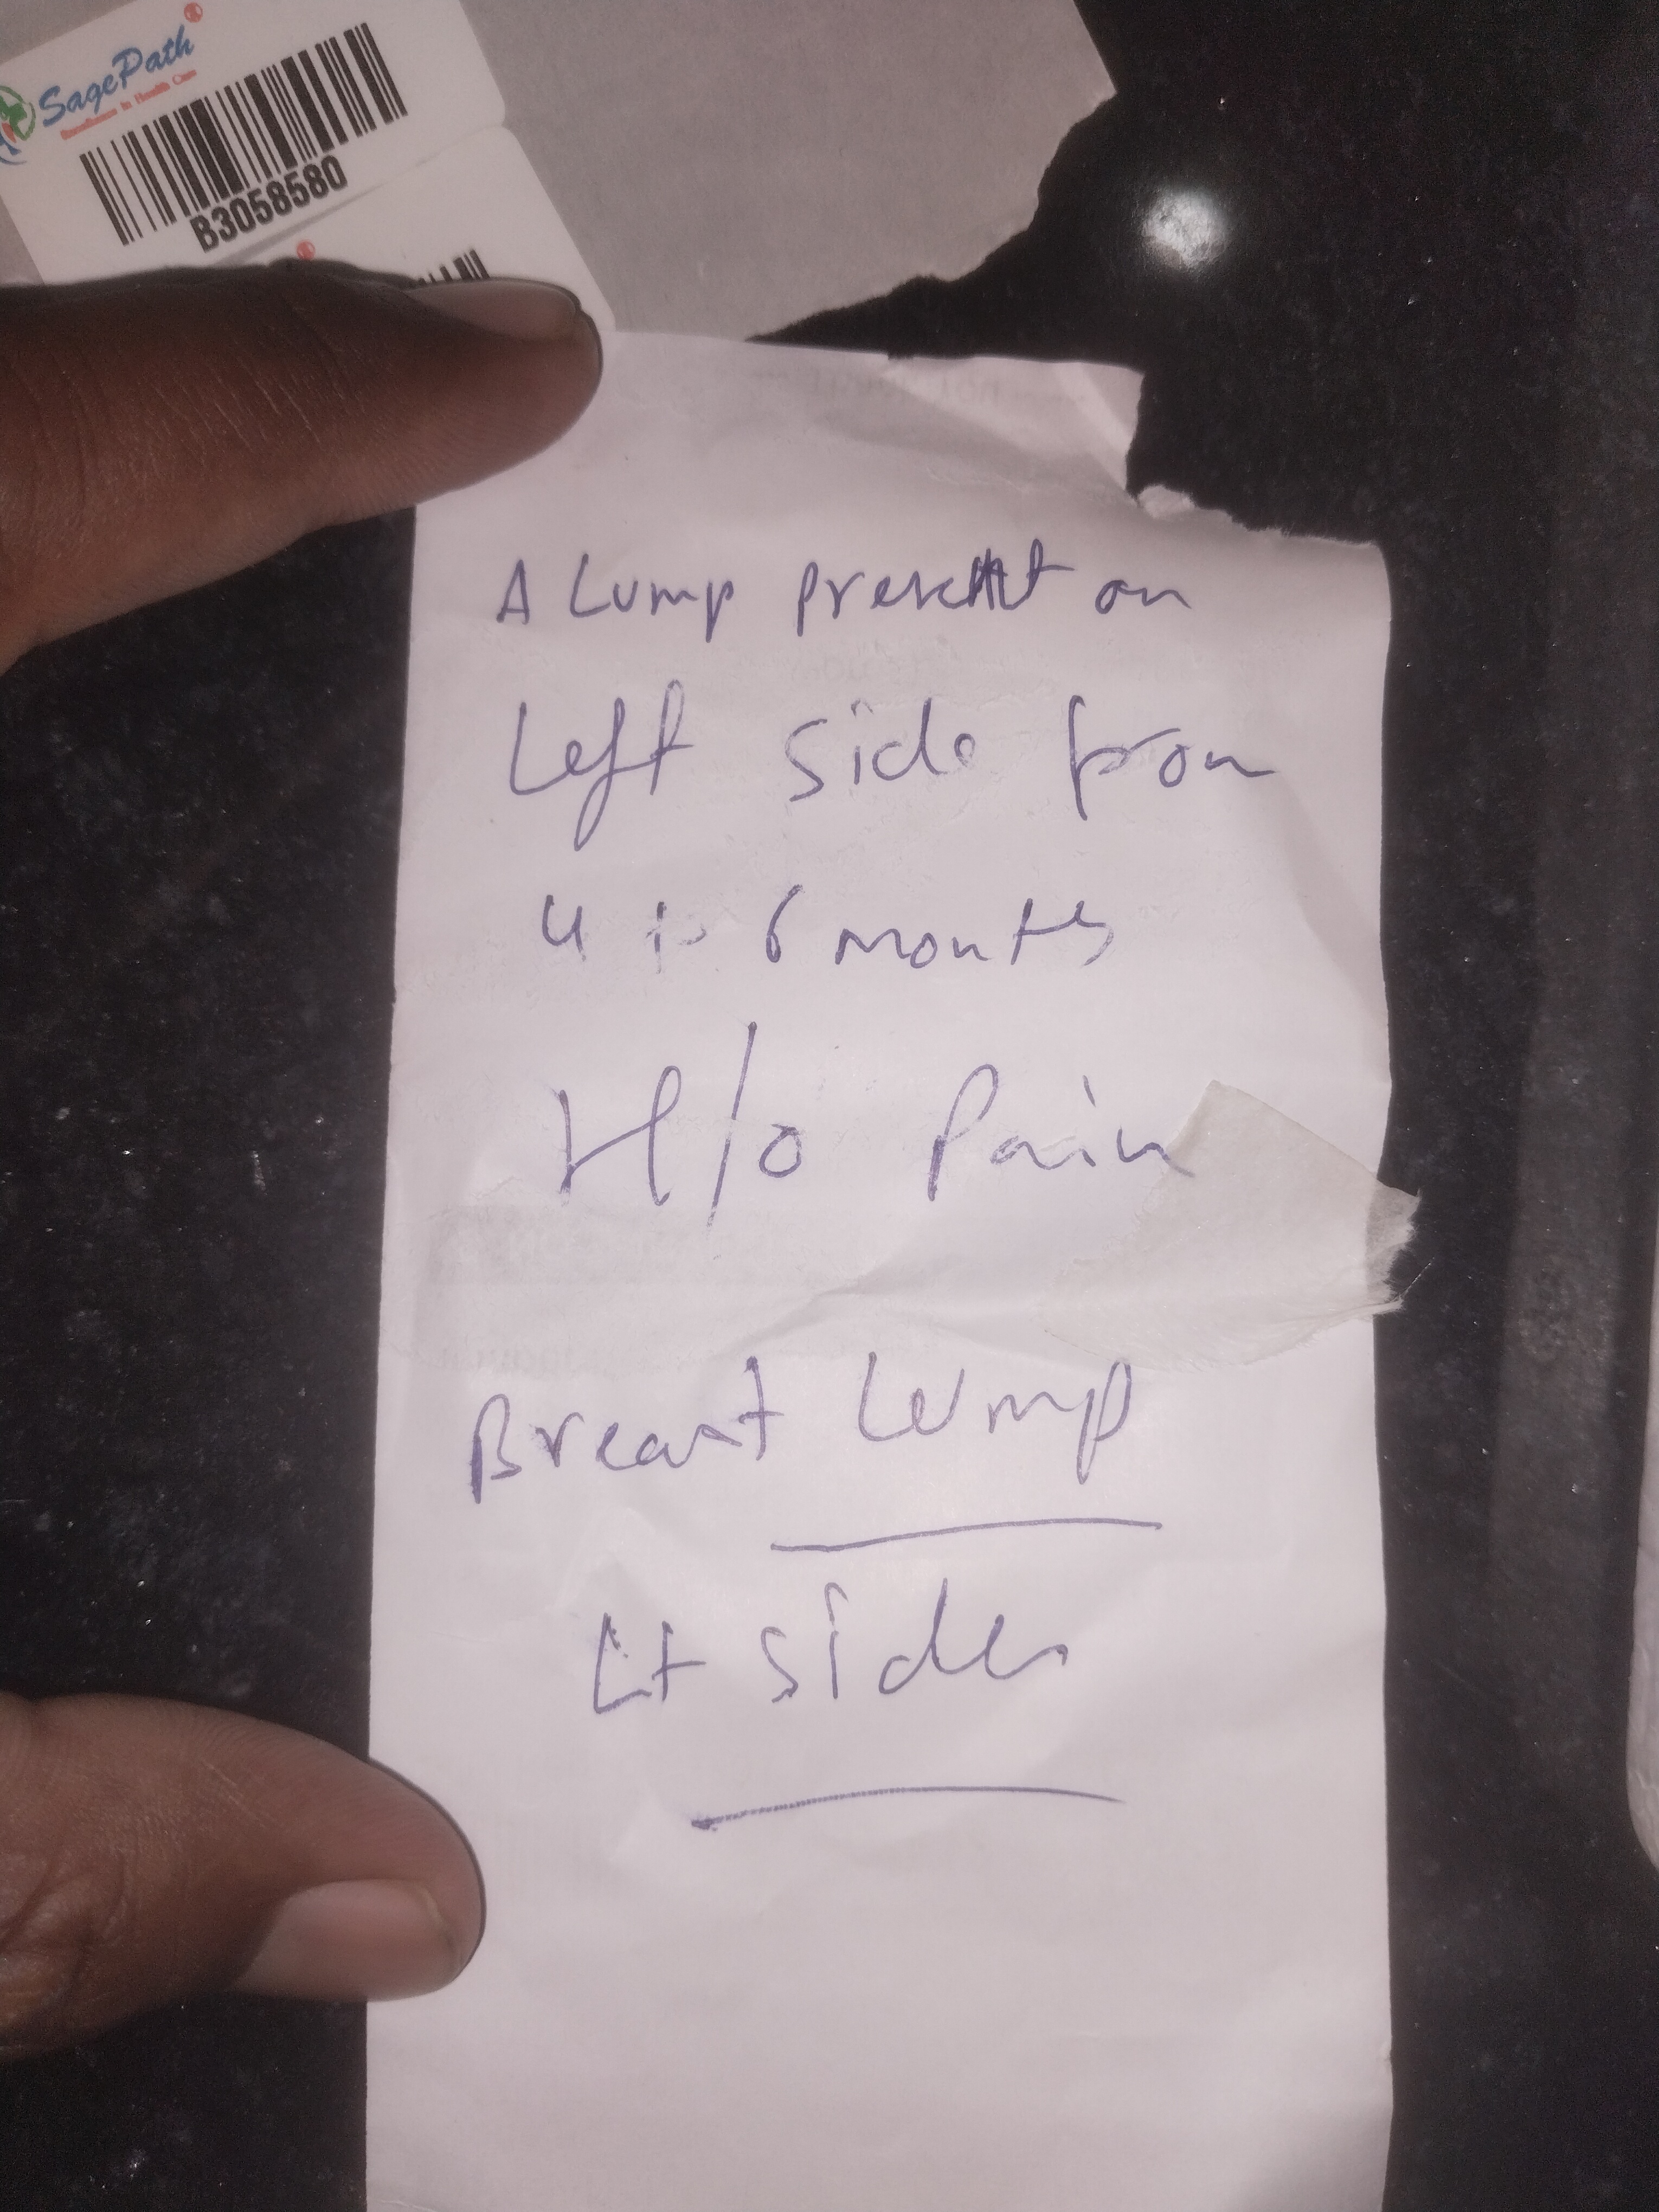 SagePath
Excellence In Health Care
B3058580
A Lump present on
Left side from
4 to 6 months
H/o Pain
Breast Lump
Lt side